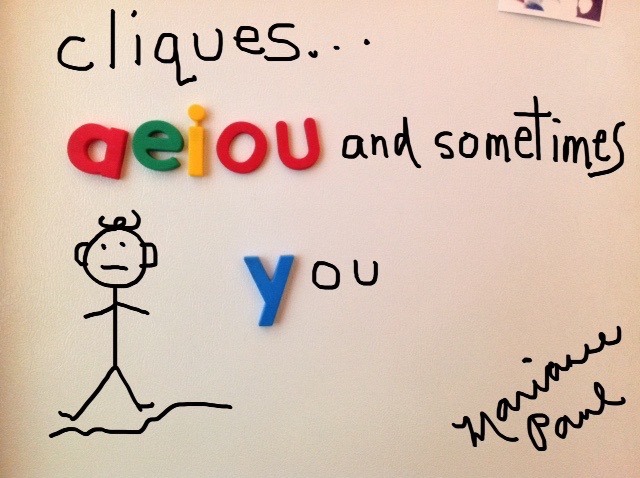 cliques...
aeiou and sometimes
you
Marianne
Paul